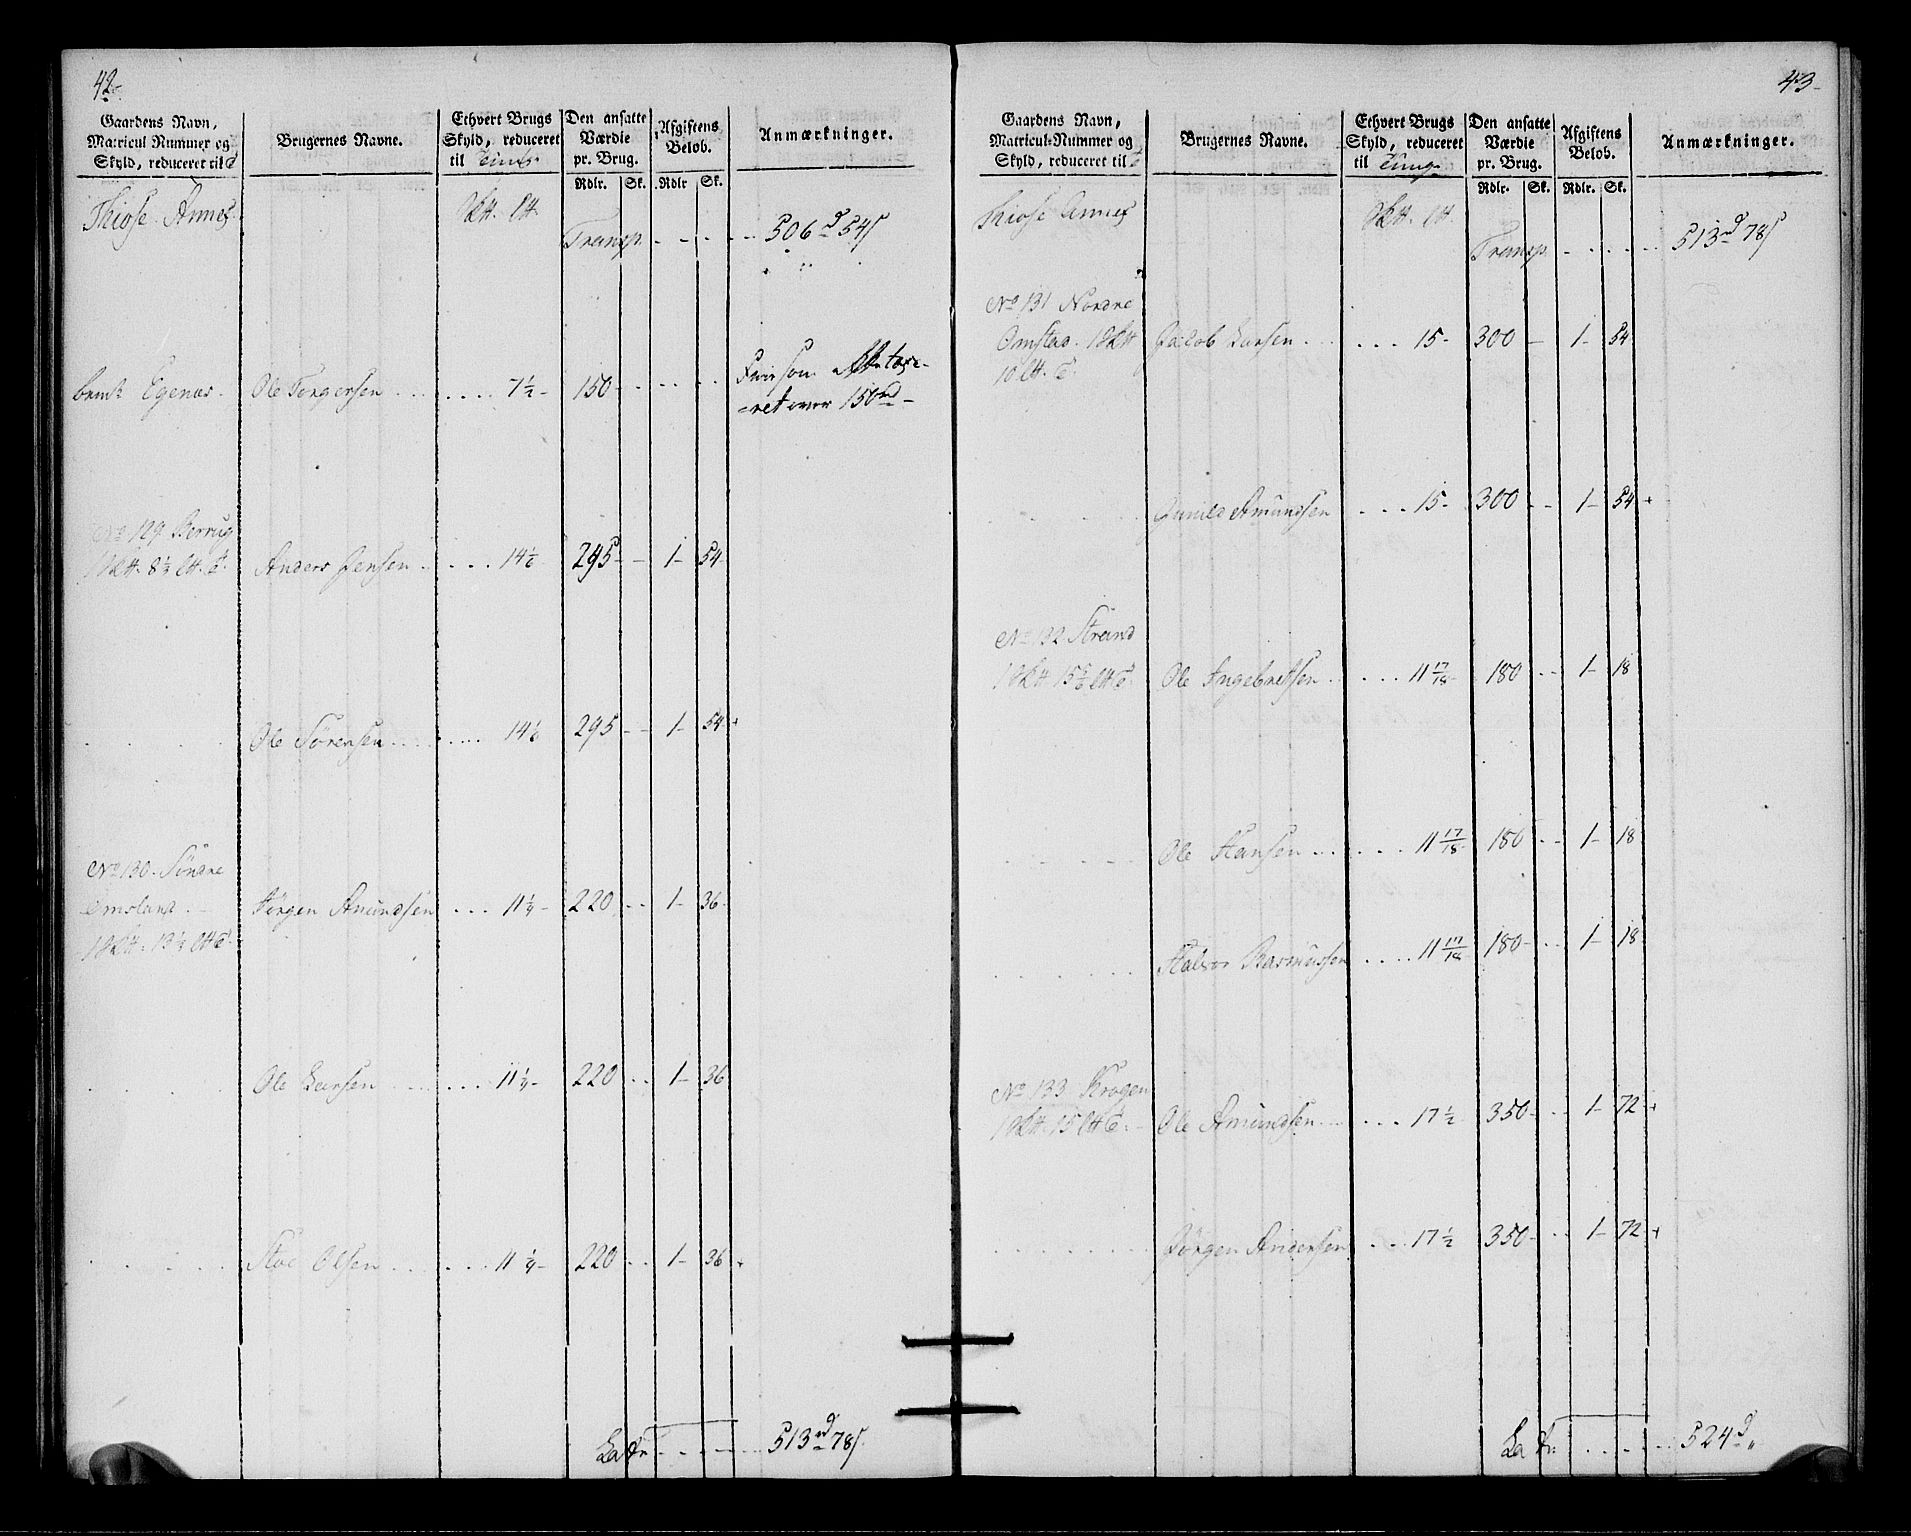 42.
Gaardens Navn,
Matricul Nummer og
Skyld, reduceret til
Brugernes Navne.
Ethvert Brugs
Skyld, reduceret
til
Den ansatte
Værdie
pr. Brug.
Rdlr. Sk.
Afgiftens
Beløb.
Rdlr Sk.
Anmærkninger.
Thiose Annex
Transp. 506 54
Egenæs. Ole Torgersen 7½ 150 150
No 129 Berrug
8⅓ Anders Jensen 14⅙ 295 1 54
Ole Sörensen 14⅙ 295 1 54
No 130. Söndre
Omsland. Jörgen Amundsen 11¼ 220 1 36
Ole Larsen 11¼ 220 1 36
Olsen 11¼ 220 1 36
513 78
43
Gaardens Navn,
Matricul-Nummer og
Skyld, reduceret til
Brugernes Navne.
Ethvert Brugs
Skyld, reduceret
til
Den ansatte
Værdie
pr. Brug.
Rdlr. Sk.
Afgiftens
Beløb.
Rdlr. Sk.
Anmærkninger.
Thiose Annex
Transp. 513 78
No 131 Nordre
Jacob Larsen 15 300 1 54
10
Amundsen 15 300 1 54
No 132 Strand
15⅚ Ole Ingebretsen 11 17/18 180 1 18
Ole Hansen 11 17/18 180 1 18
Halvor Rasmussen 11 17/18 180 1 18
No 133 Krogen
15 Ole Amundsen 17½ 350 1 72
Jörgen Andersen 17½ 350 1 72
524